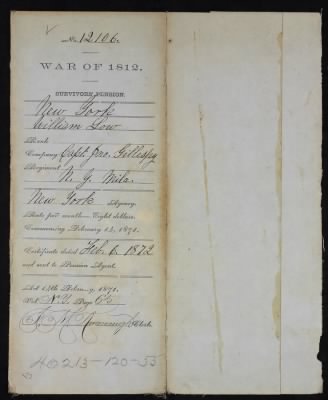 No. 12106.
WAR OF 1812.
SURVIVORS PENSION.
New York
William Low
Rank
Company Capt. Jno. Gillespy
Regiment
N. Y. Mila.
New York Agency.
Rate per month—Eight dollars.
Commencing February 14, 1871.
Certificate dated Feb. 6, 1872
and sent to Pension Agent.
Act 14th February, 1871.
Vol. N.Y. Page
Clerk.
40213-120-55